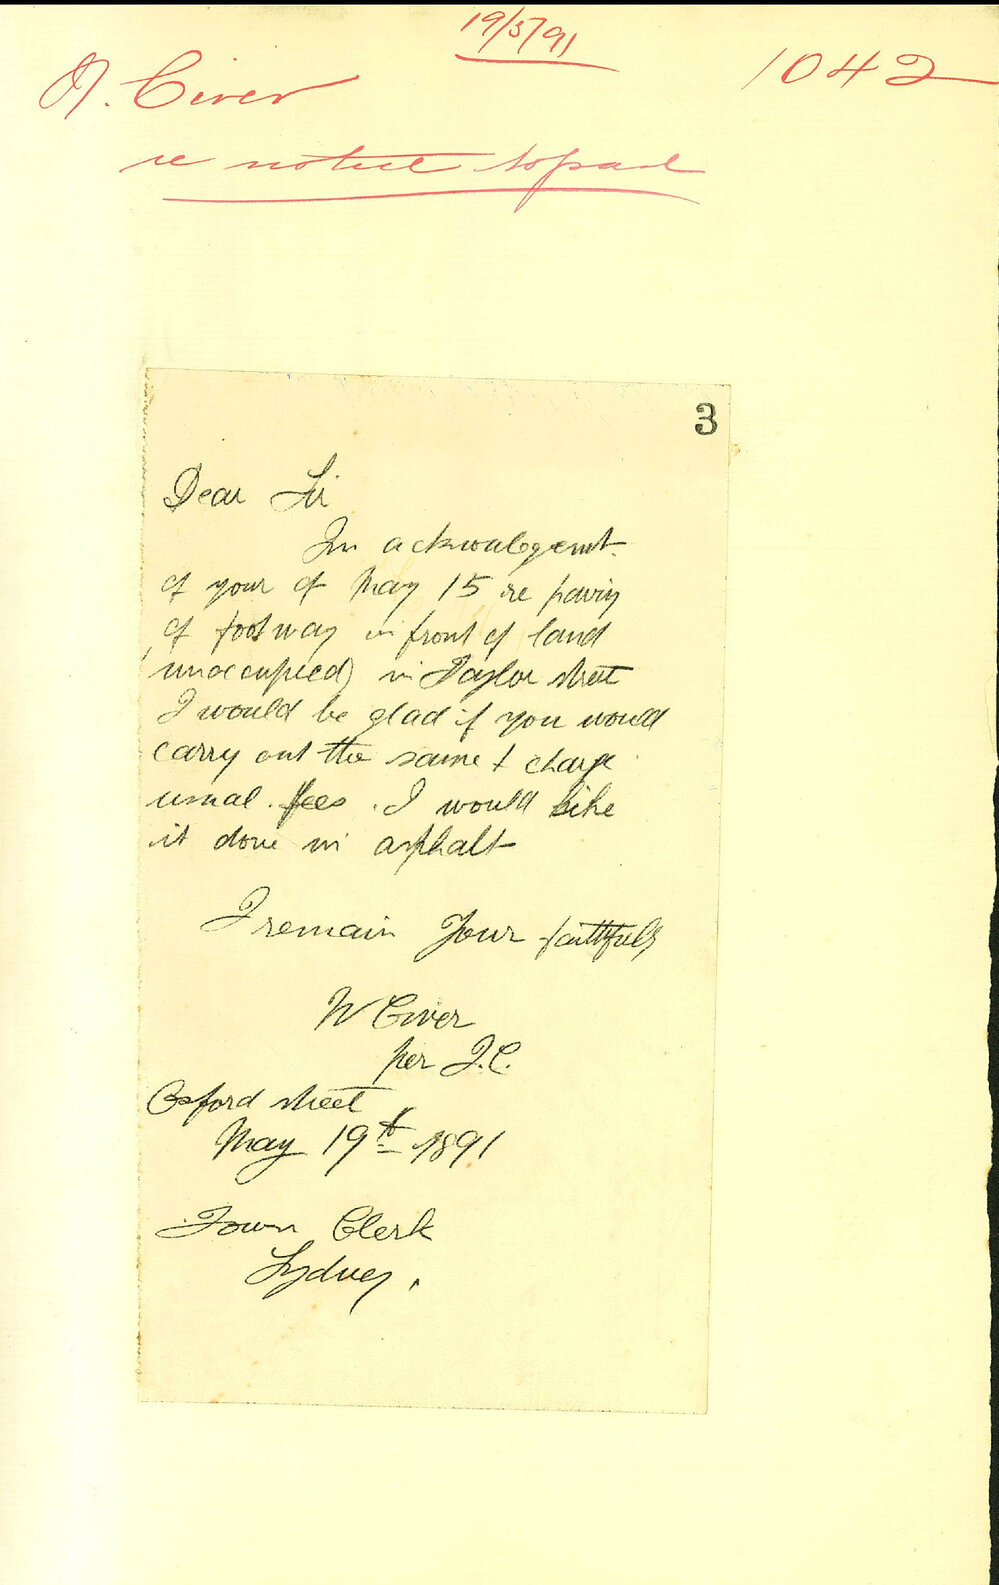 19/5/91
W. Civer
1042
re notice to pave
3
Dear Sir
In acknowalogemt
of your of May 15 re paving
of footway in front of land
(unoccupied) in Taylor street
I would be glad if you would
carry out the same + charge
usual fees. I would like
it done in asphalt
I remain Your faithfuly
W Civer
per J.C.
Oxford street
May 19th 1891
Town Clerk
Sydney.